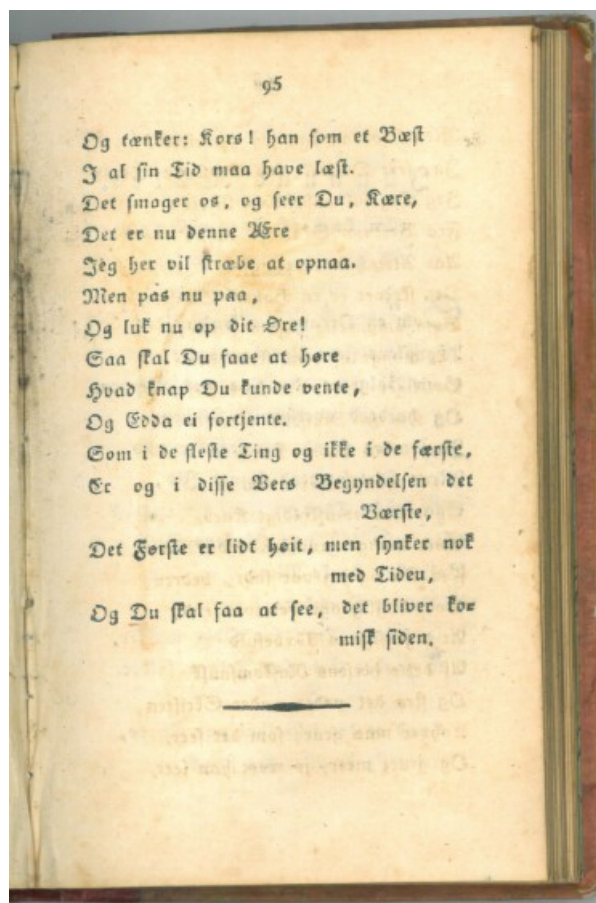 95
Og tænker: Kors! han som et Bæst
I al sin Tid maa have læst.
Det smager os, og seer Du, Kære,
Det er nu denne Ære
Jeg her vil stræbe at opnaa.
Men pas nu paa,
Og luk nu op dit Øre!
Saa skal Du faae at høre
Hvad knap Du kunde vente,
Og Edda ei fortjente.
Som i de fleste Ting og ikke i de færste,
Er og i disse Vers Begyndelsen det
Værste,
Det Første er lidt høit, men synker nok
med Tideu,
Og Du skal faa at see, det bliver ko-
misk siden.